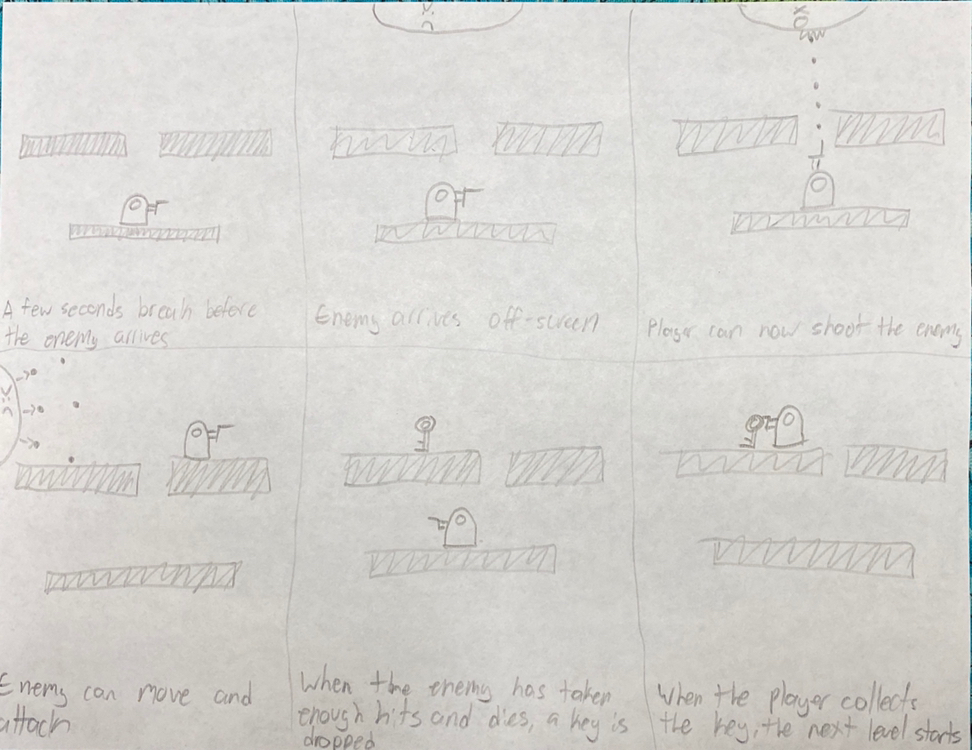 A few seconds break before
the enemy arrives
Enemy arrives off-screen
Player can now shoot the enemy
Enemy can move and
attack
When the enemy has taken
enough hits and dies, a key is
dropped
When the player collects
the key, the next level starts